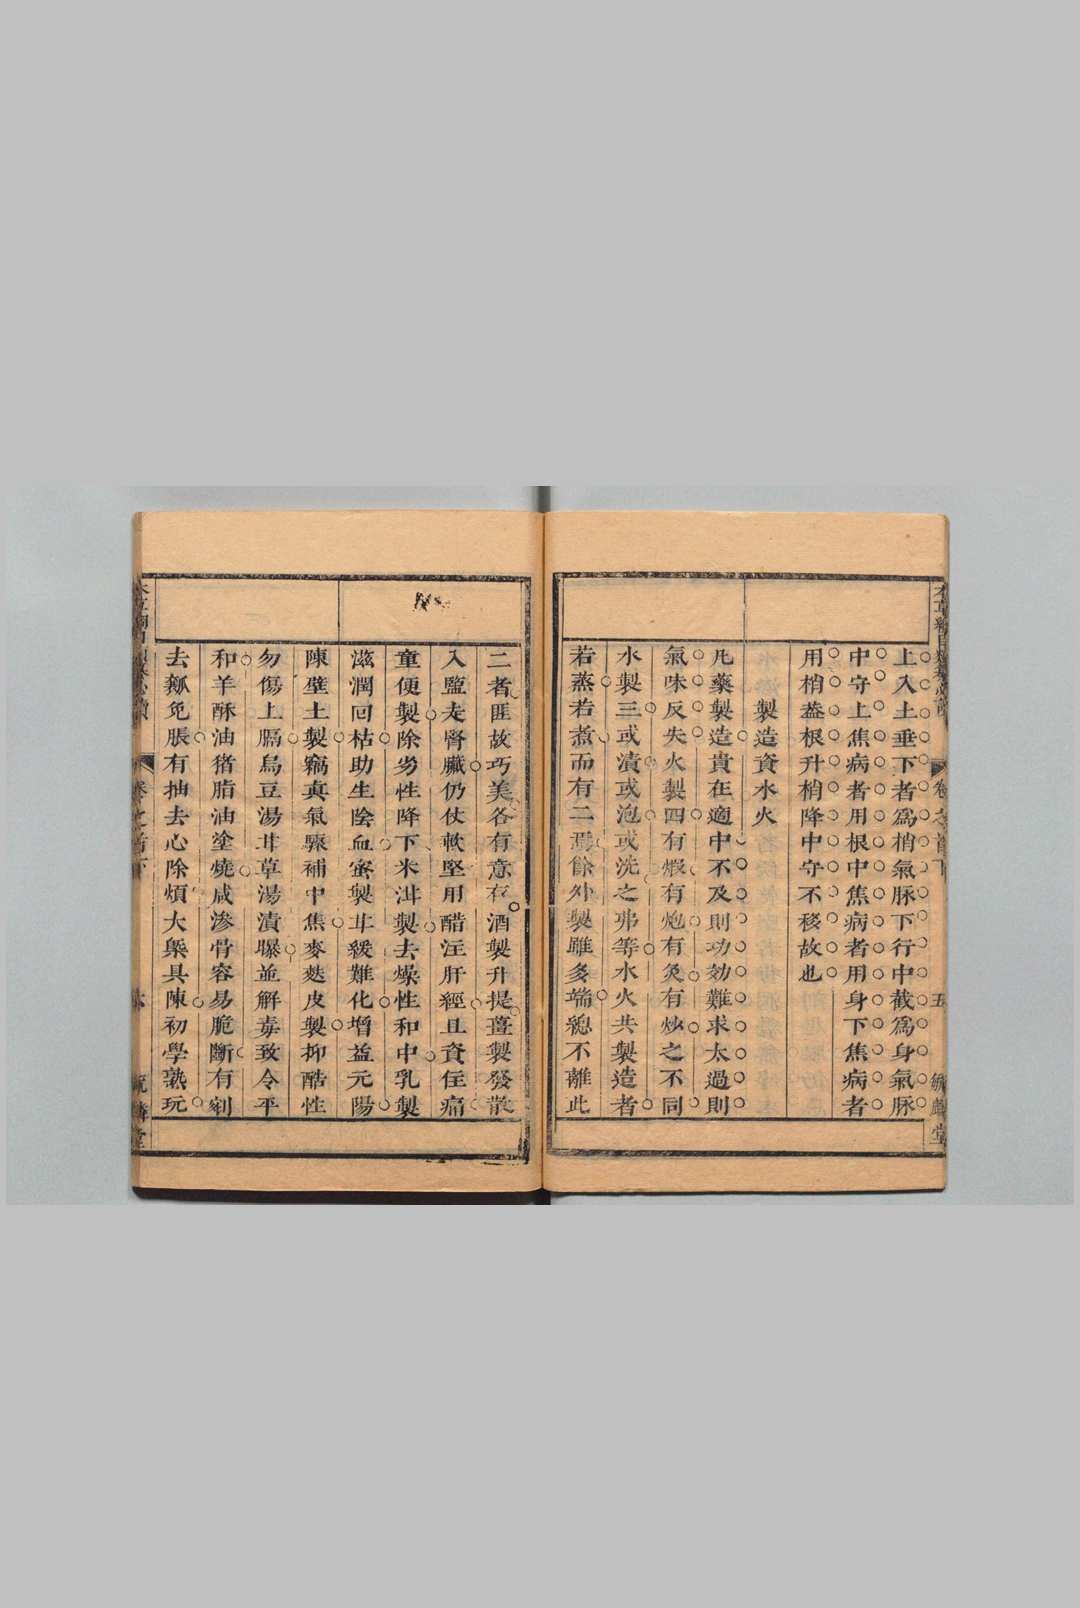 上入土垂下者爲梢氣脉下行中截爲身氣脉
中守上焦病者用根中焦病者用身下焦病者
用梢葢根升梢降中守不移故也
製造資水火
凡藥製造貴在適中不及則功効難求太過則
氣味反失火製四有煆有炮有炙有炒之不同
水製三或漬或泡或洗之弗等水火共製造者
若蒸若煮而有二焉餘外製雖多端總不離此
二者匪故巧美各有意存酒製升提薑製發散
入鹽走腎臟仍仗軟堅用醋注肝經且資住痛
童便製除劣性降下米泔製去燥性和中乳製
滋潤回枯助生陰血蜜製甘緩難化增益元陽
陳壁土製竊真氣驟補中焦麥麩皮製抑酷性
勿傷上膈烏豆湯甘草湯漬曝並解毒致令平
和羊酥油猪脂油塗燒咸滲骨容易脆斷有剜
去瓤免脹有抽去心除煩大槩具陳初學熟玩